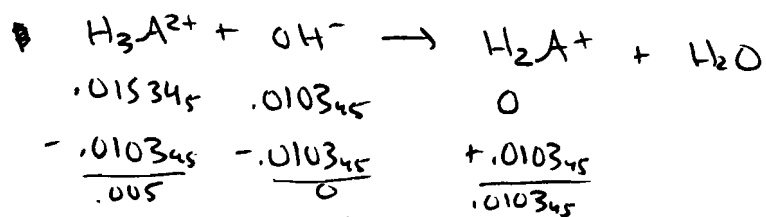 H₃A²⁺ + OH⁻ → H₂A⁺ + H₂O
.01534₅ .0103₄₅ 0
- .0103₄₅ -.0103₄₅ +.0103₄₅
.005 0 .0103₄₅